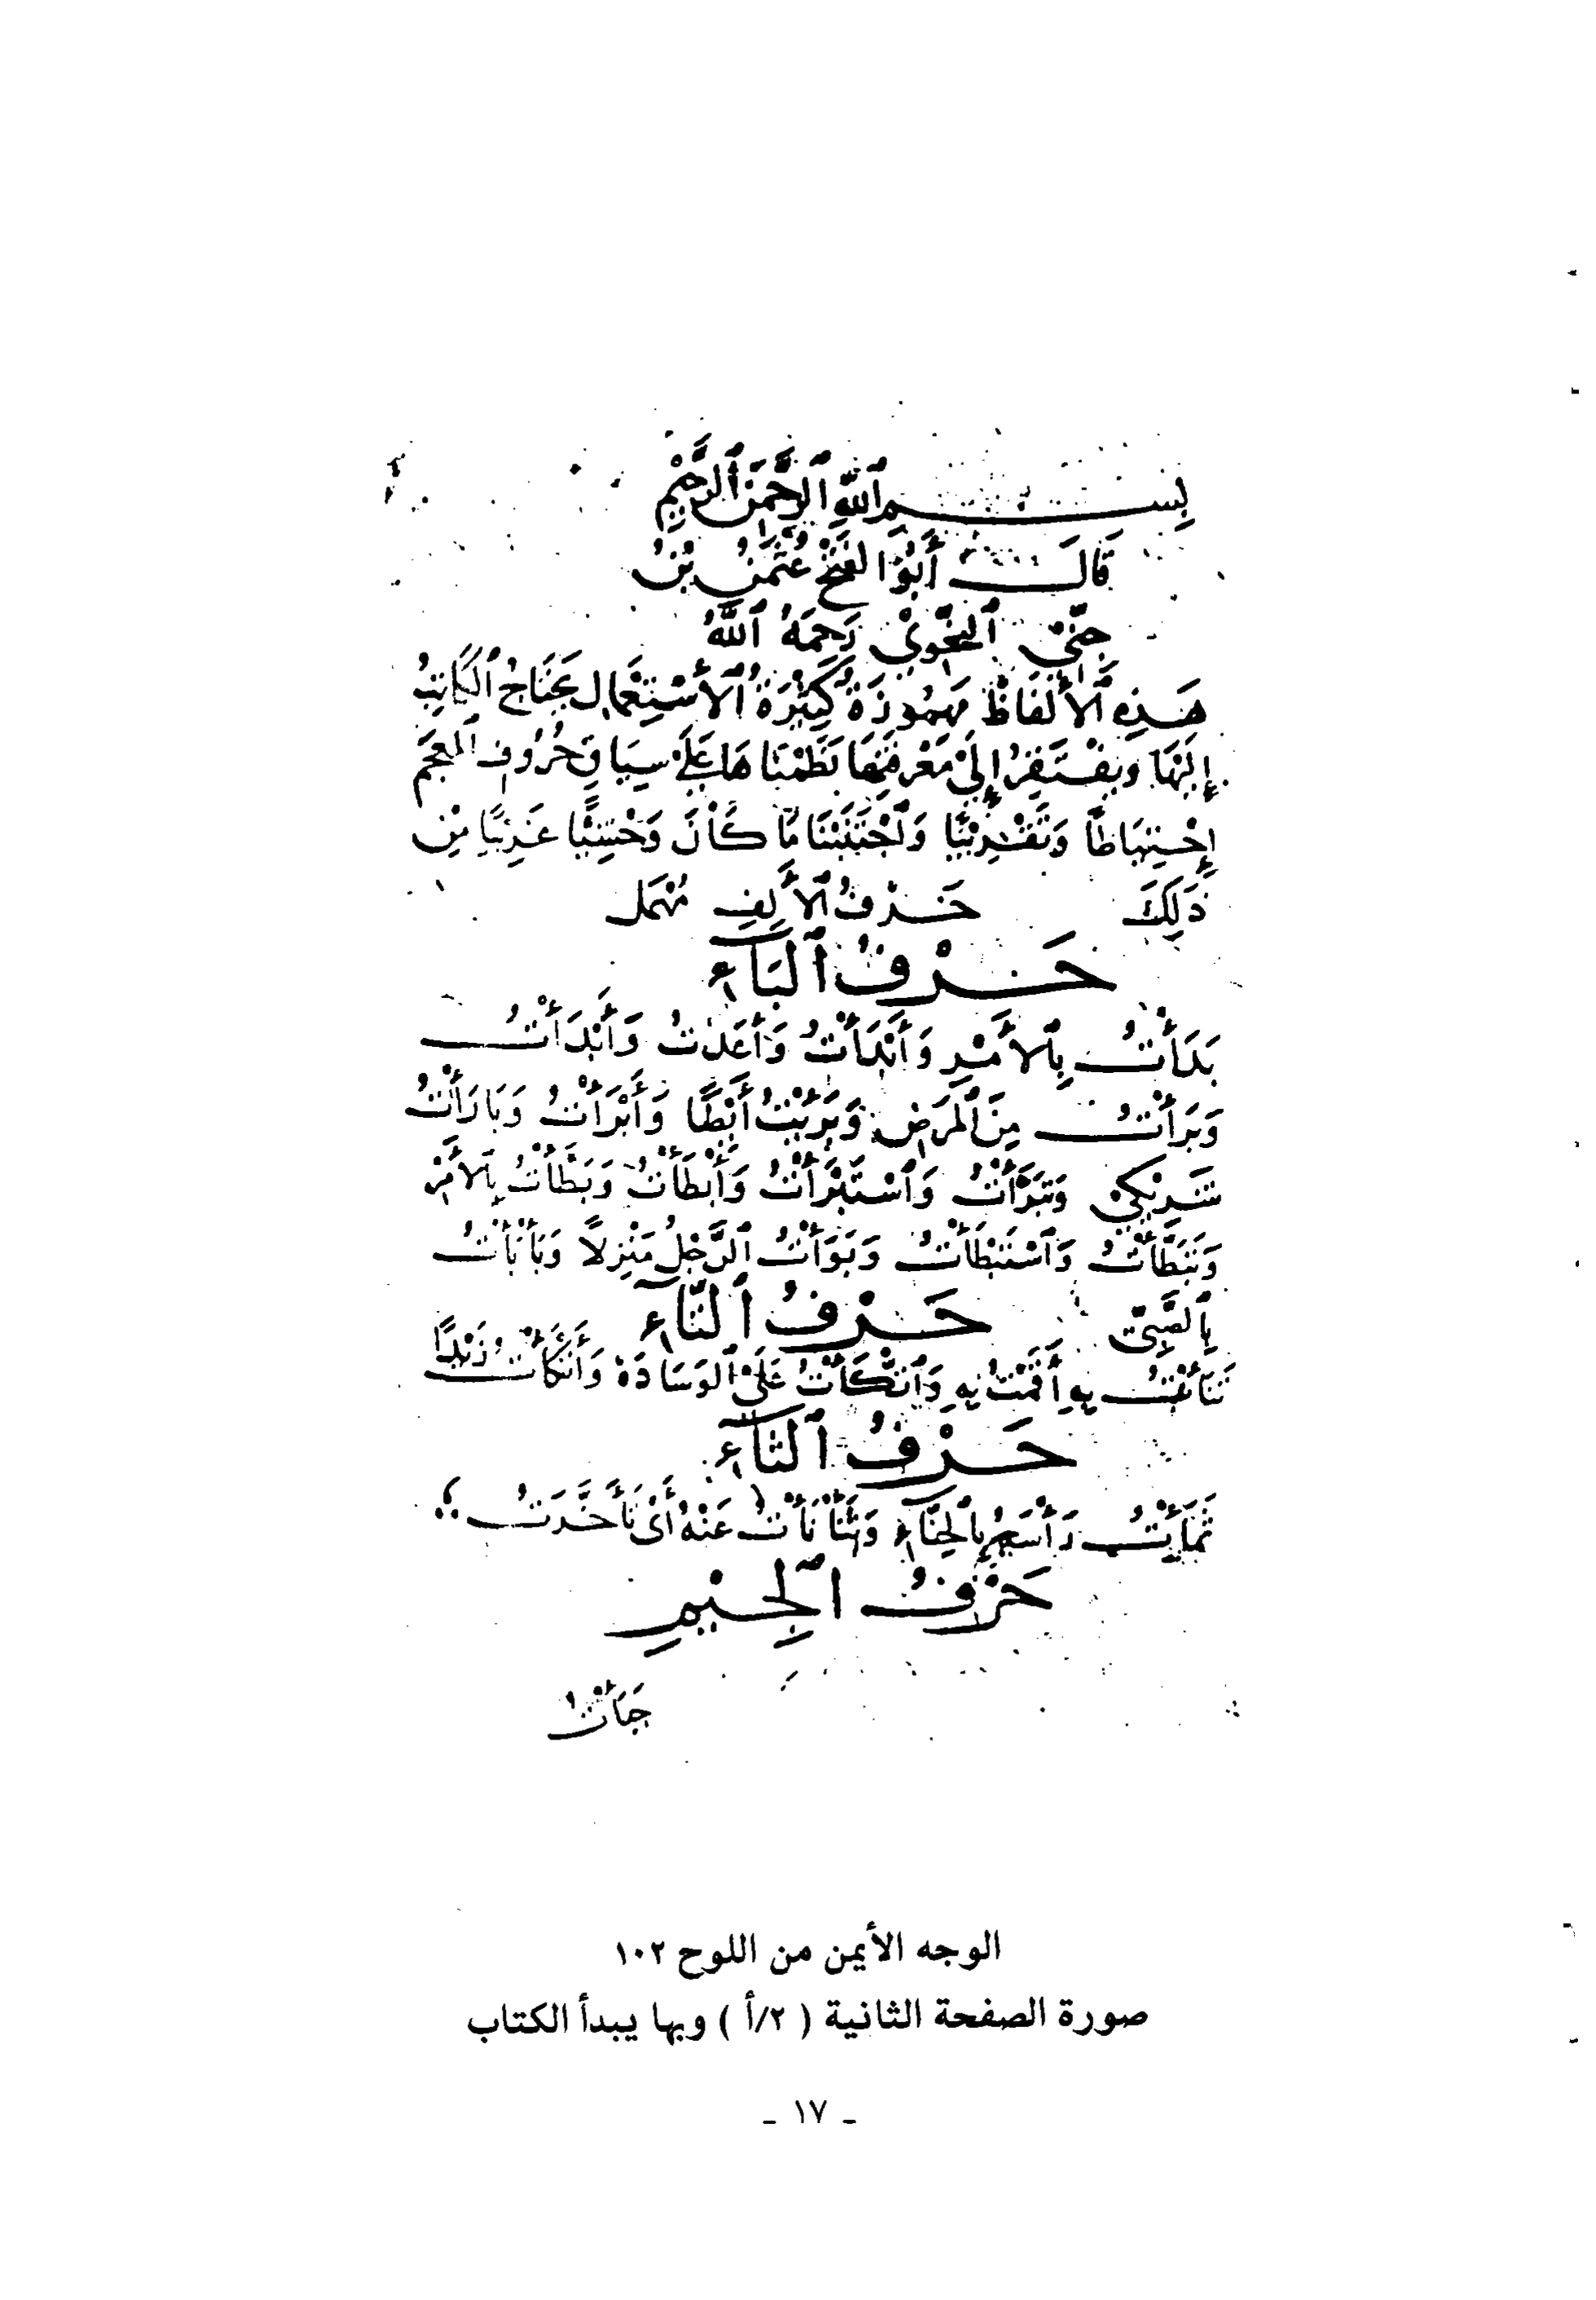 بِسْمِ ٱللَّهِ ٱلرَّحْمَٰنِ ٱلرَّحِيمِ
قَالَ أَبُو الفَتْحِ عُثْمَٰنُ بْنُ
جِنِّي ٱلنَّحْوِيُّ رَحِمَهُ ٱللَّهُ
هَذِهِ ٱلأَلْفَاظُ مَهْمُوزَةٌ كَثِيرَةُ ٱلأسْتِعْمَالِ يَحْتَاجُ ٱلكَاتِبُ
إِلَيْهَا وَيَفْتَقِرُ إِلَى مَعْرِفَتِهَا نَظَمْنَاهَا عَلَى سِيَاقِ حُرُوفِ ٱلمُعْجَمِ
إِحْتِيَاطًا وَتَقْرِيْبًا وَٱجْتَنَبْنَا مَا كَانَ وَحْشِيًّا غَرِيْبًا مِنْ
ذَلِكَ حَرْفُ ٱلأَلِفِ مُهْمَل
حَرْفُ ٱلبَآءِ
بَدَأْتُ بِٱلأَمْرِ وَأَبْدَأْتُ وَأَعَدْتُ وَأَبْدَأْتُ
وَبَرَأْتُ مِنَ ٱلمَرَضِ وَبَرِئْتُ أَيْضًا وَأَبْرَأْتُ وَبَارَأْتُ
شَرِيْكِي وَتَبَرَّأْتُ وَٱسْتَبْرَأْتُ وَأَبْطَأْتُ وَبَطَّأْتُ بِٱلأَمْرِ
وَتَبَطَّأْتُ وَٱسْتَبْطَأْتُ وَبَوَّأْتُ ٱلرَّجُلَ مَنْزِلاً وَبَأْبَأْتُ
بِٱلصَّبِيِّ حَرْفُ ٱلتَّآءِ
تَنَأْتُ بِهِ أَقَمْتُ بِهِ وَٱتَّكَأْتُ عَلَى ٱلوِسَادَةِ وَأَتْكَأْتُ زَيْدًا
حَرْفُ ٱلثَّآءِ
ثَمَأْتُ رَأْسَهُ بِٱلحِنَّاءِ وَثَأْثَأْتُ عَنْهُ أَيْ تَأَخَّرَتُ
حَرْفُ ٱلجِيْمِ
جَأْتُ
الوجه الأيمن من اللوح ١٠٢
صورة الصفحة الثانية ( ٢/أ ) وبها يبدأ الكتاب
ـ ١٧ ـ